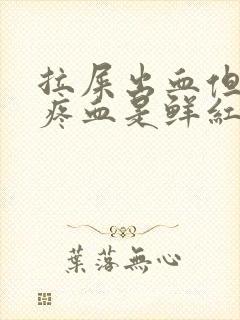 拉屎出血但
疼血是鲜紅
葉落無心